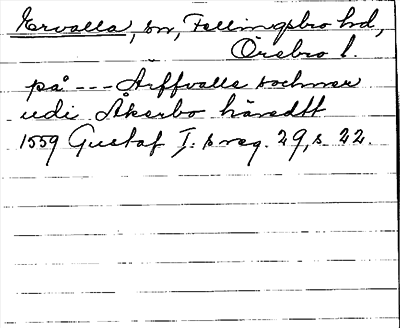 Ervalla, sn, Fellingsbro hd,
Örebro l.
på --- Arffvalle sochner
udi Åkerbo häredtt
1559 Gustaf I:s reg. 29, s. 22.